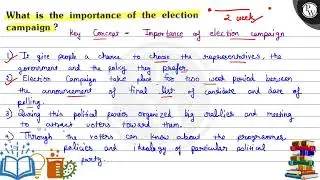 What is the importance of the election
campaign ?
2 week
Key Concept - Importance of election campaign
1) It give people a chance to choose the representatives, the
government and the policy they prefer.
2) Election Campaign take place for two week period between
the announcement of final list of candidate and date of
polling.
3) during this political period organized big rallies and meeting
to attract voters toward them.
4) Through the voters can know about the programmes,
policies and ideology of particular political
party.